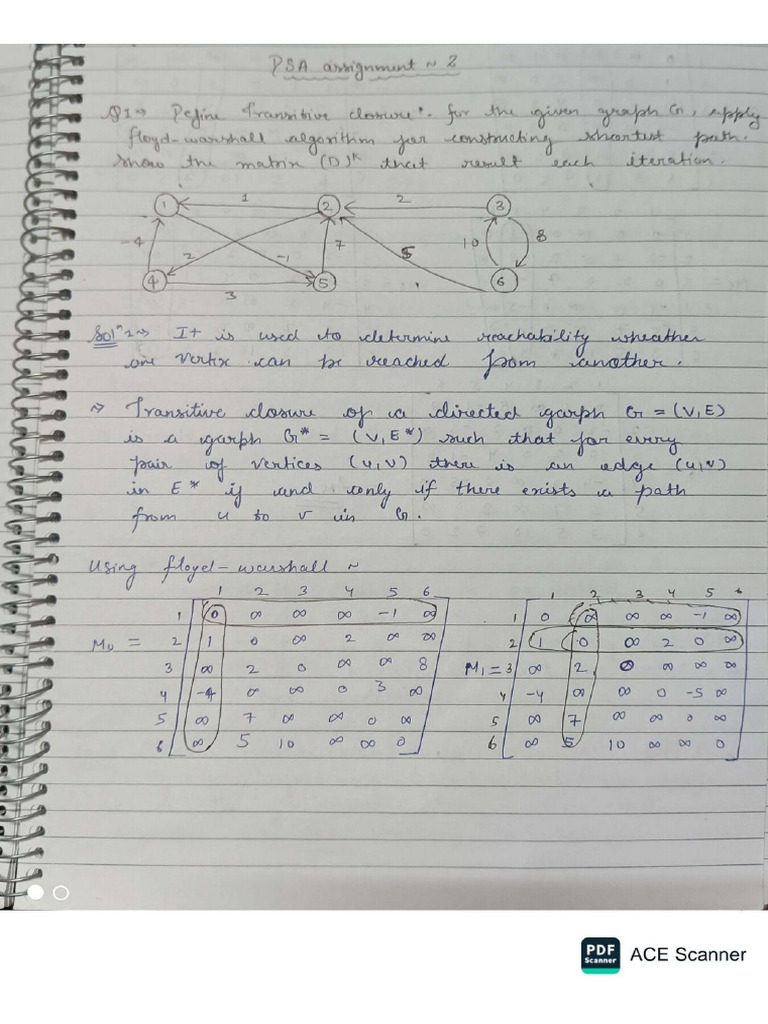 DSA assignment ~ 2
Q1 → Define Transitive closure. for the given graph G, apply
floyd-warshall algorithm for constructing shortest path.
show the matrix (D)^k that result each iteration.
1 1 2 2 3
-4 2 -1 7 5 10 8
4 3 5 6
Solⁿ → It is used to determine reachability wheather
one vertix can be reached from another.
→ Transitive closure of a directed garph G = (V,E)
is a garph G* = (V,E*) such that for every
pair of vertices (u,v) there is an edge (u,v)
in E* if and only if there exists a path
from u to v in G.
Using floyd-warshall ~
1 2 3 4 5 6
1 0 ∞ ∞ ∞ -1 ∞
M0 = 2 1 0 ∞ 2 ∞ ∞
3 ∞ 2 0 ∞ ∞ 8
4 -4 ∞ ∞ 0 3 ∞
5 ∞ 7 ∞ ∞ 0 ∞
6 ∞ 5 10 ∞ ∞ 0
1 2 3 4 5 6
1 0 ∞ ∞ ∞ -1 ∞
2 1 0 ∞ 2 0 ∞
M1 = 3 ∞ 2 0 ∞ ∞ ∞
4 -4 ∞ ∞ 0 -5 ∞
5 ∞ 7 ∞ ∞ 0 ∞
6 ∞ 5 10 ∞ ∞ 0
PDF Scanner ACE Scanner